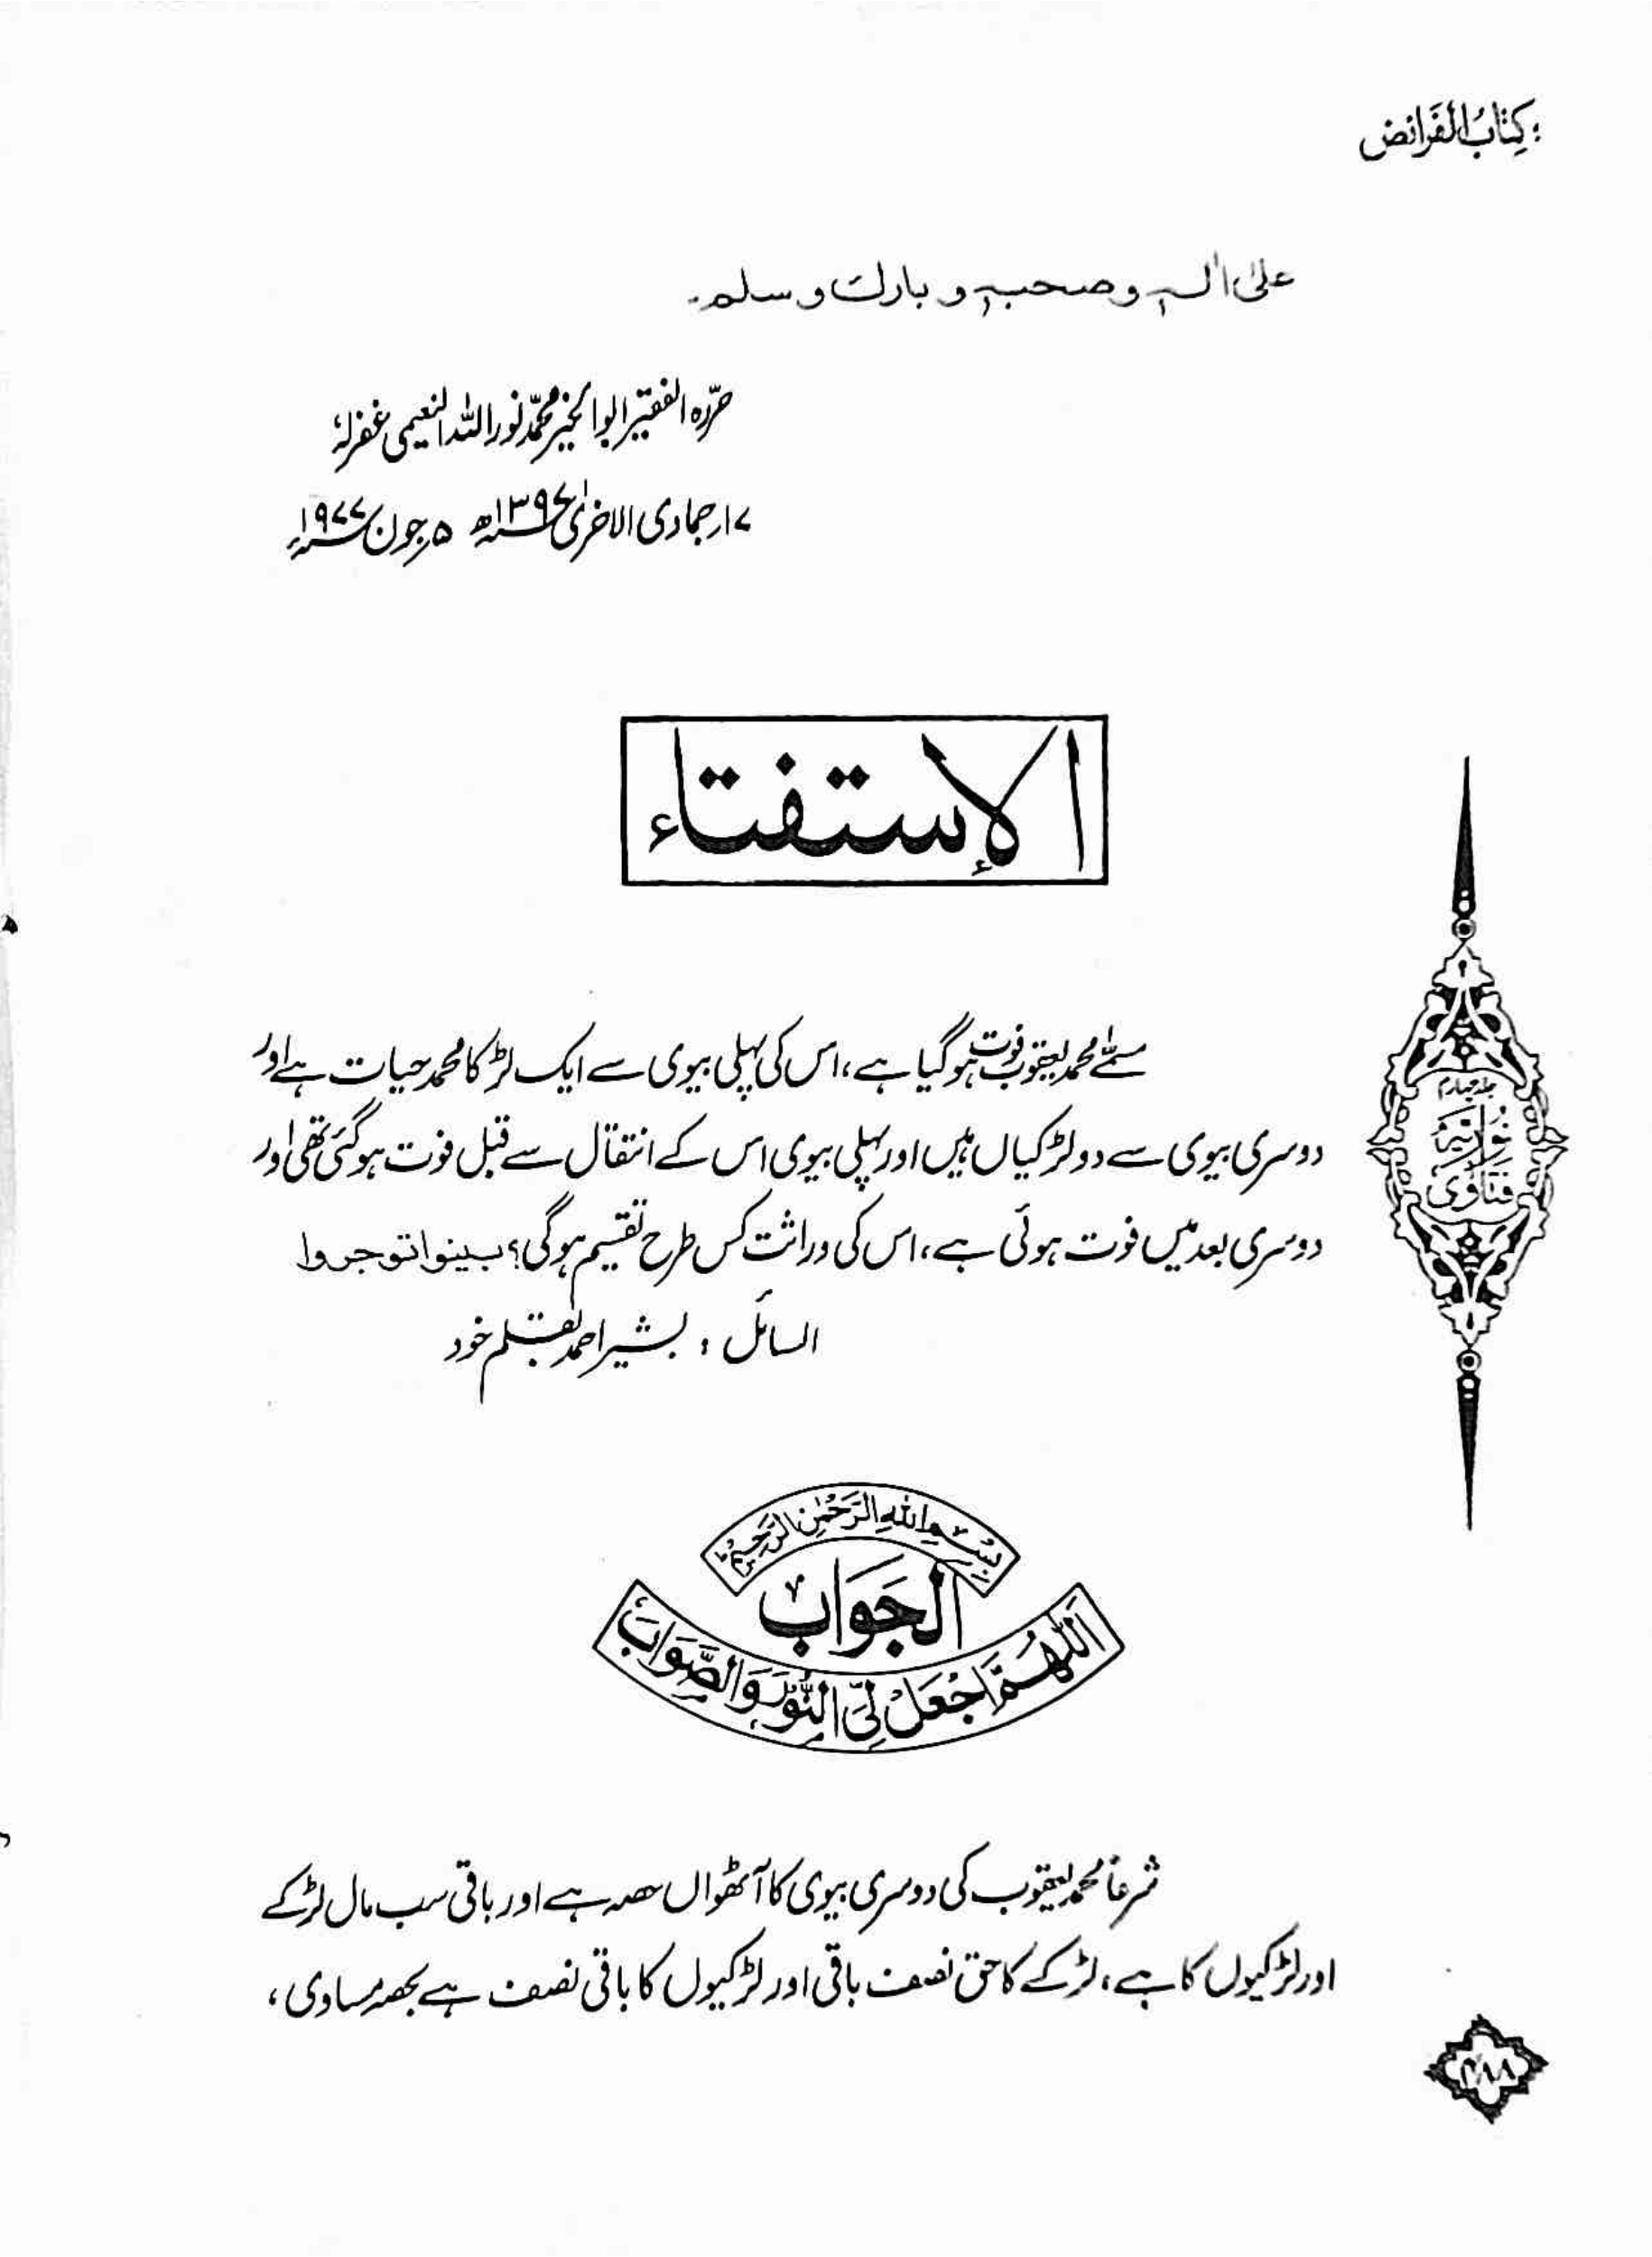 کِتَابُ الْفَرَائض
علیٰ اٰلہٖ وصحبہٖ و بارك وسلم۔
حرّرہ الفقیر ابوالخیر محمّد نور اللہ النعیمی غفرلہٗ
۱۷ جمادی الاخریٰ ۱۳۹۷ھ ۵ جون ۱۹۷۷ء
الإستفتاء
مسمّٰے محمد یعقوب فوت ہوگیا ہے، اس کی پہلی بیوی سے ایک لڑکا محمد حیات ہے اور
دوسری بیوی سے دو لڑکیاں ہیں اور پہلی بیوی اس کے انتقال سے قبل فوت ہوگئی تھی اور
دوسری بعد میں فوت ہوئی ہے، اس کی وراثت کس طرح تقسیم ہوگی؟ بینوا توجروا
السائل : بشیر احمد بقلم خود
جلد چہارم
نُوریَّہ
فتَاوٰی
بِسْمِ اللهِ الرَّحْمٰنِ الرَّحِيْمِ
الجَوَاب
اَللّٰهُمَّ اجْعَلْ لِّيَ النُّوْرَ وَالصَّوَابَ
شرعاً محمد یعقوب کی دوسری بیوی کا آٹھواں حصہ ہے اور باقی سب مال لڑکے
اور لڑکیوں کا ہے، لڑکے کا حق نصف باقی اور لڑکیوں کا باقی نصف ہے بحصہ مساوی،